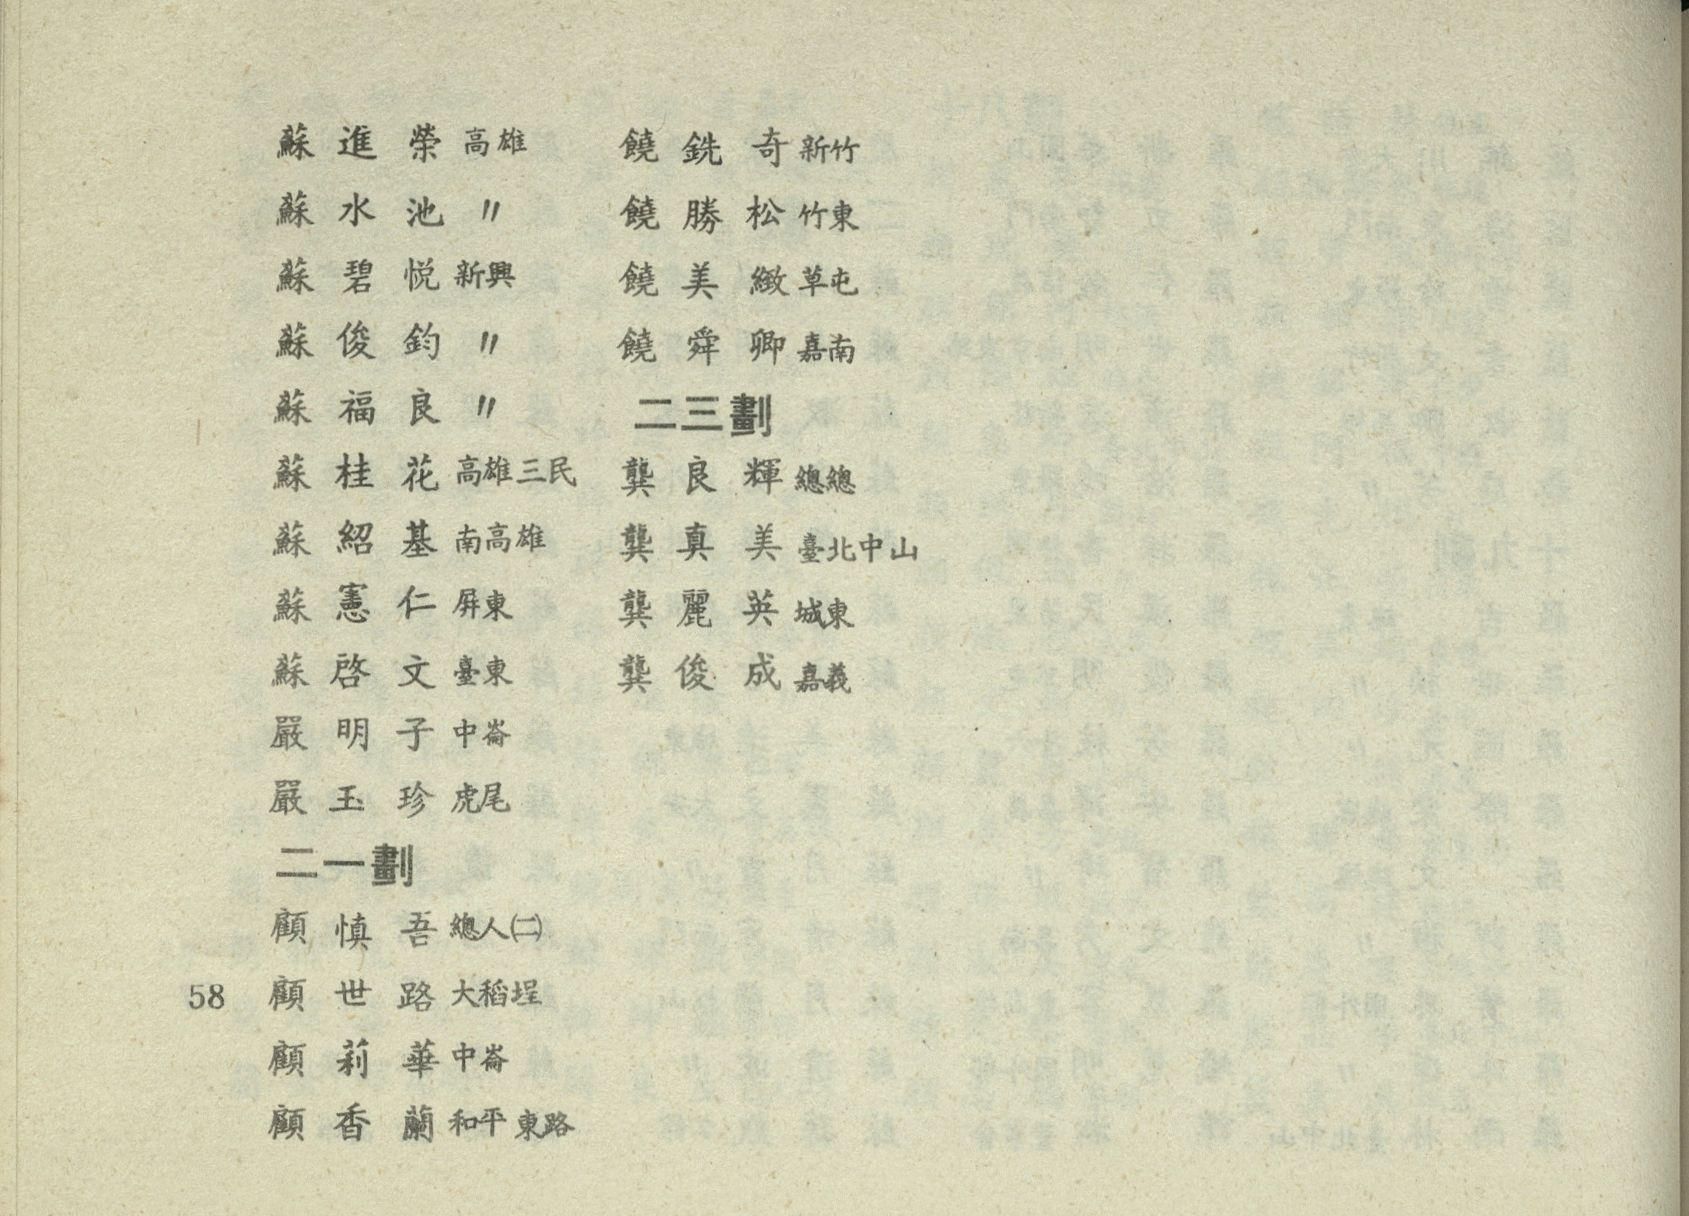 蘇進榮 高雄
蘇水池 〃
蘇碧悅 新興
蘇俊鈞 〃
蘇福良 〃
蘇桂花 高雄三民
蘇紹基 南高雄
蘇憲仁 屏東
蘇啓文 臺東
嚴明子 中崙
嚴玉珍 虎尾
二一劃
顧慎吾 總人㈡
顧世路 大稻埕
顧莉華 中崙
顧香蘭 和平東路
饒銑奇 新竹
饒勝松 竹東
饒美緻 草屯
饒舜卿 嘉南
二三劃
龔良輝 總總
龔真美 臺北中山
龔麗英 城東
龔俊成 嘉義
58